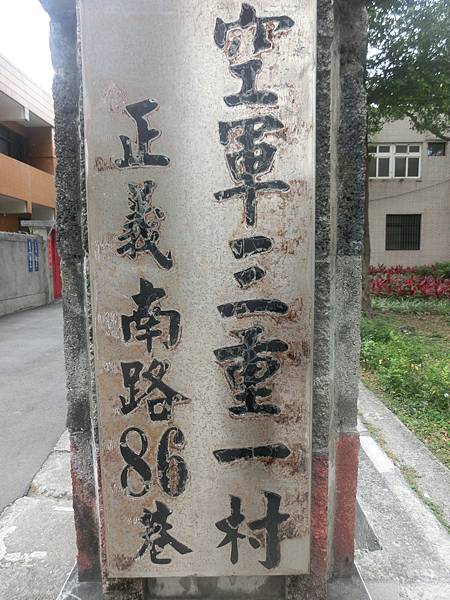 空軍三重一村
正義南路86巷